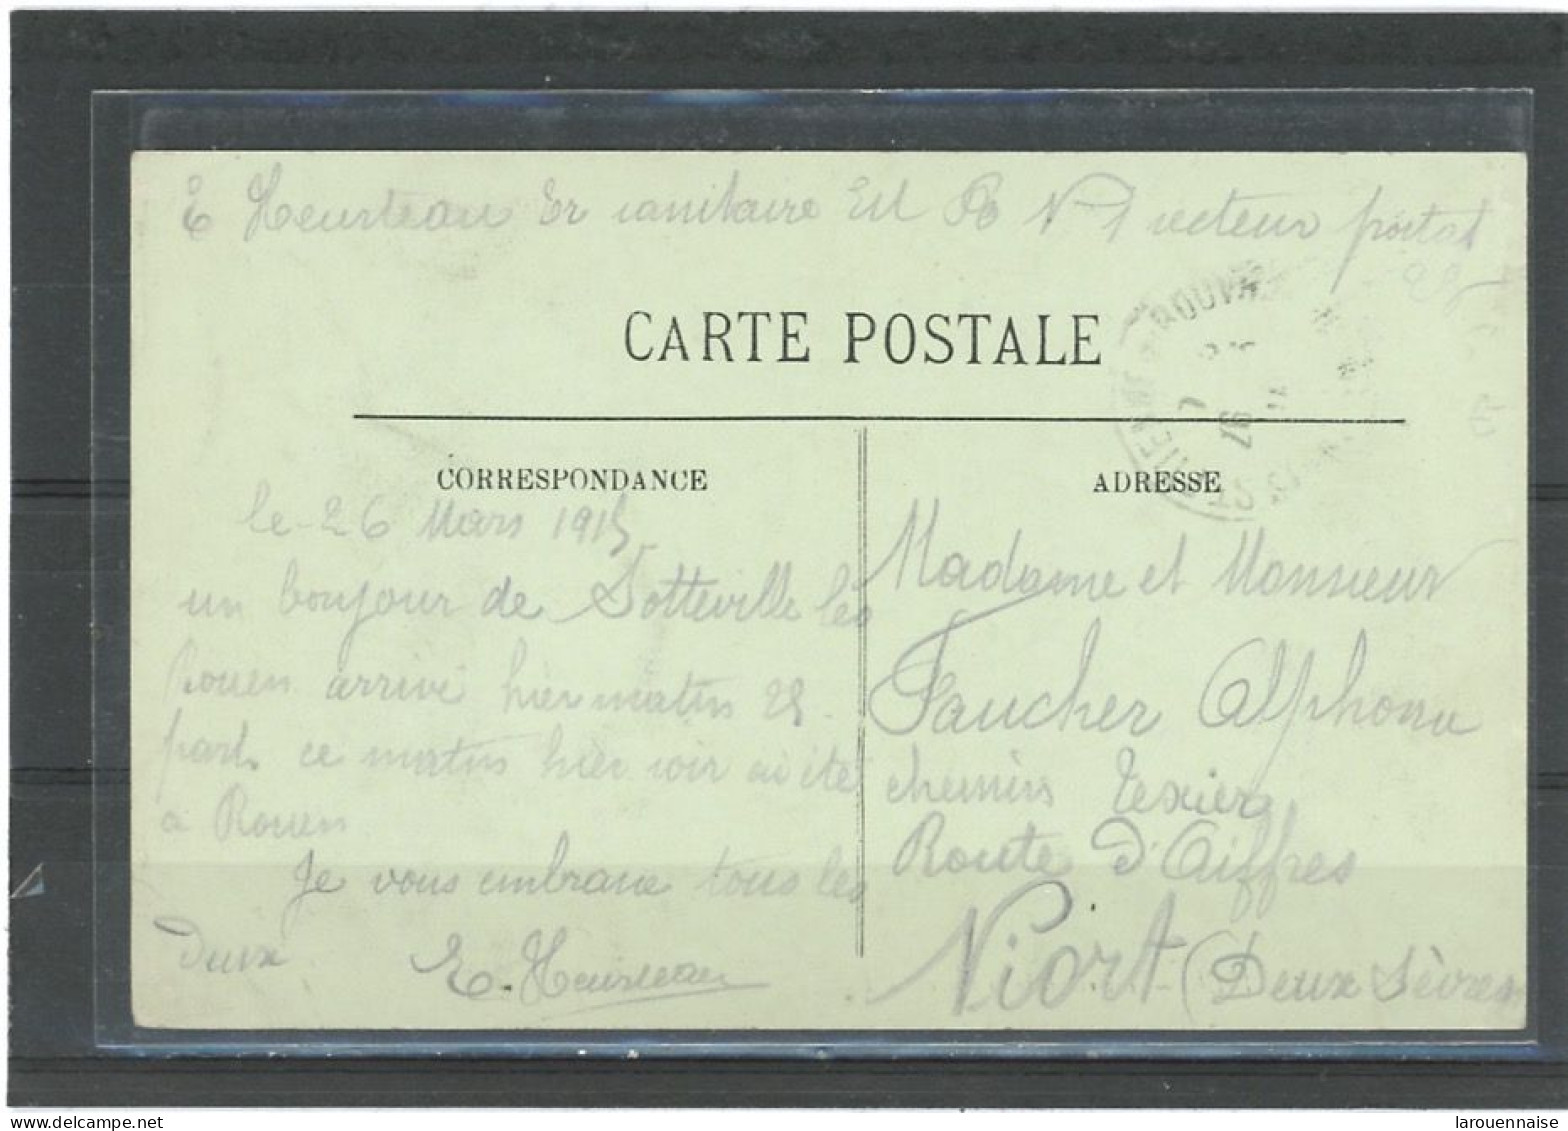 E Heurteau Er sanitaire Est B N°1 secteur postal
CARTE POSTALE
CORRESPONDANCE
le 26 Mars 1915
un bonjour de Sotteville les
Rouen arrivé hier matin 25
part ce matin hier soir ai été
a Rouen
Je vous embrasse tous les
Deux
E. Heurteau
ADRESSE
Madame et Monsieur
Faucher Alphonse
chemin Texier
Route d'Aiffres
Niort (Deux Sèvres
larouennaise